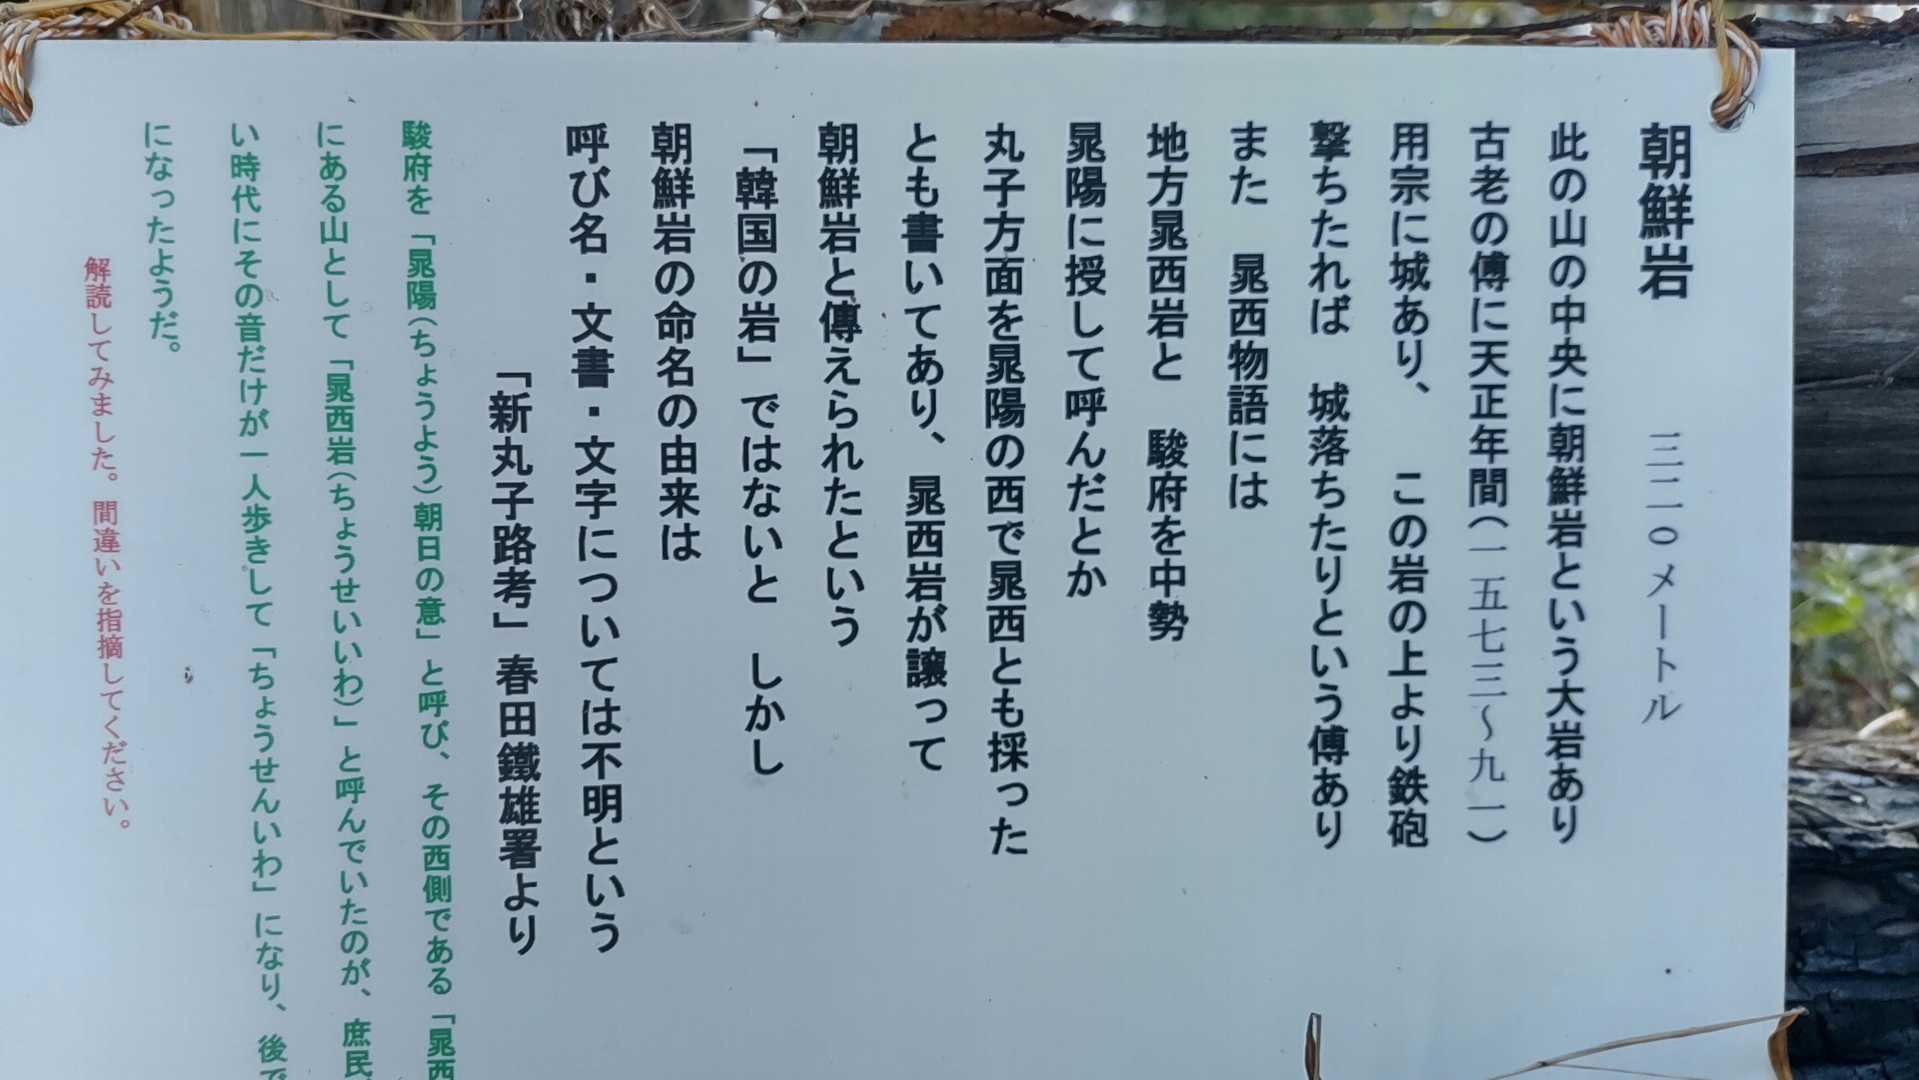 朝鮮岩　三二〇メートル
此の山の中央に朝鮮岩という大岩あり
古老の傳に天正年間（一五七三～九一）
用宗に城あり、　この岩の上より鉄砲
撃ちたれば　城落ちたりという傳あり
また　晁西物語には
地方晁西岩と　駿府を中勢
晁陽に授して呼んだとか
丸子方面を晁陽の西で晁西とも採った
とも書いてあり、晁西岩が譲って
朝鮮岩と傳えられたという
「韓国の岩」ではないと　しかし
朝鮮岩の命名の由来は
呼び名・文書・文字については不明という
「新丸子路考」春田鐵雄署より
駿府を「晁陽（ちょうよう）朝日の意」と呼び、その西側である「晁西
にある山として「晁西岩（ちょうせいいわ）」と呼んでいたのが、庶民
い時代にその音だけが一人歩きして「ちょうせんいわ」になり、後で
になったようだ。
解読してみました。間違いを指摘してください。